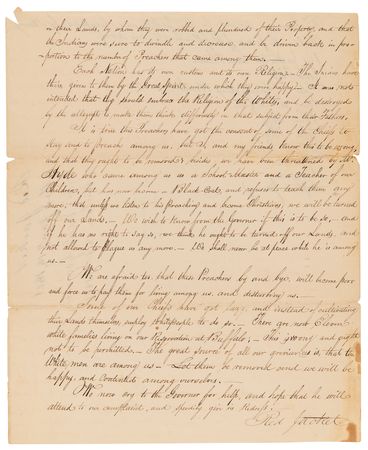 their Lands, by whom they were robbed and plundered of their Property, and that
the Indians were sure to dwindle and decrease, and be driven back in pro-
portion to the number of Preachers that came among them.
Each Nation has its own custom and its own Religion. The Indians have
theirs given to them by the Great Spirit, under which they were happy. It was not
intended that they should embrace the Religion of the Whites, and be destroyed
by the attempt to make them think differently on that subject from their Fathers.
It is true these Preachers have got the consent of some of the Chiefs to
stay and to preach among us, but I, and my friends know this to be wrong,
and that they ought to be removed; besides we have been threatened by Mr
Hyde who came among us as a School Master and a Teacher of our
Children, but has now become a Black Coat, and refuses to teach them any
more; that unless we listen to his Preaching and become Christians, we will be turned
off our Lands. We wish to know from the Governor if this is to be so, and
if he has no right to say so, we think he ought to be turned off our Lands, and
not allowed to plague us any more. We shall never be at peace while he is among
us.
We are afraid too, that these Preachers by and bye, will become poor
and force us to pay them for living among us, and disturbing us.
Some of our Chiefs have got Lazy, and instead of cultivating
their Lands themselves, employ White people to do so. There are now Eleven
white families living on our Reservation at Buffalo; This is wrong and ought
not to be permitted. The great source of all our grievances is, that the
White men are among us. Let them be removed and we will be
happy, and contented among ourselves.
We now cry to the Governor for help, and hope that he will
attend to our complaint, and speedily give us Redress.
Red Jacket